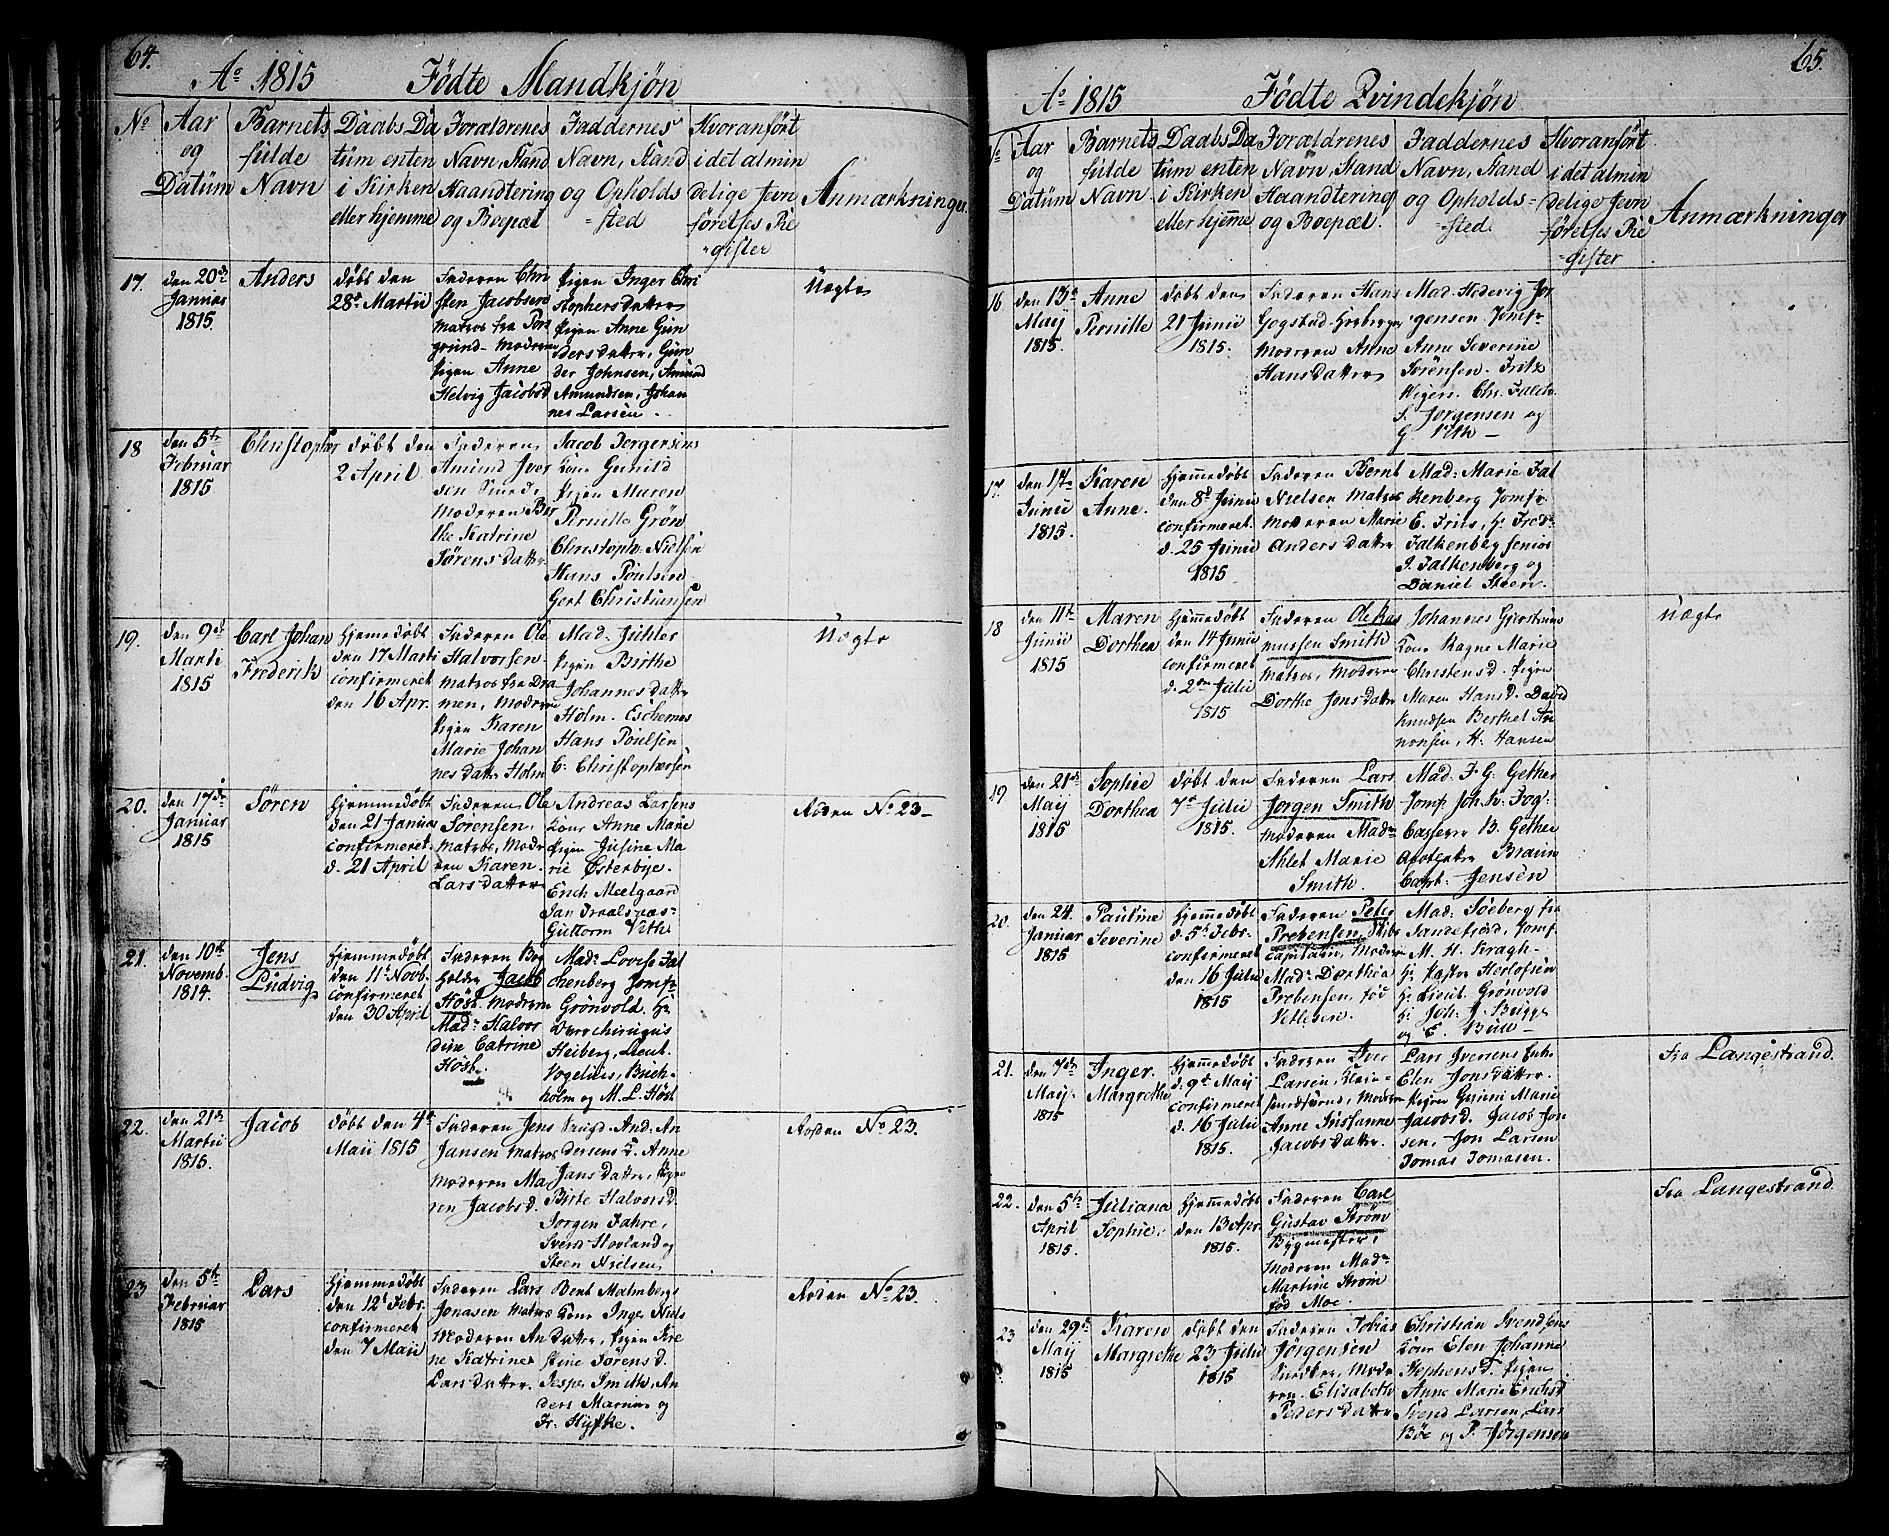 64.
Ao 1815 Födte Mandkjön
No
Aar
og
Datüm
Barnets
fülde
Navn
Daabs Da
tüm enten
i Kirken
eller hjemme
Forældrenes
Navn, Stand
Haandtering
og Boepæl
Faddernes
Navn, Stand
og Opholds
=sted
Hvoranfört
i det almin
delige Jevn
förelses Re
=gister
Anmærkninger
17.
den 20de
Januar
1815.
Anders
döbt den
28de Martii
Faderen Chri
sten Jacobsen
Matros fra Pors
grund. Moderen
Pigen Anne
Helvig Jacobsd
Pigen Inger Chri
stophersdatter
Pigen Anne Gun
dersdatter, Gun
der Johnsen, Amund
Amundsen, Johan
nes Larsen.
Uægte
18
den 5te
Februar
1815
Christopher
döbt den
2 April
Faderen
Amund Iver
sen Smed,
Moderen Ber
the Katrine
Sörensdatter
Jacob Jörgensens
Kone Gunild
Pigen Maren
Pernille Grön
Christoph. Nielsen
Hans Poulsen
Gert Christiansen
19.
den 9de
Marti
1815
Carl Johan
Frederik
Hjemmedöbt
den 17 Marti
confirmeret
den 16 Apr.
Faderen Ole
Halvorsen
Matros fra Dra
men, Moderen
Pigen Karen
Marie Johan
nesdatter Holm
Mad. Jühler
Pigen Birthe
Johannesdatter
Holm. Eschernes
Hans Poülsen
C. Christophersen
Uægte
20.
den 17de
Januar
1815
Sören
Hjemmedöbt
den 21 Januar
confirmeret
d. 21 April
Faderen Ole
Sörensen,
Matros, Mode
ren Karen
Larsdatter
Andreas Larsens
Kone Anne Marie
Pigen Jüsine Ma
rie Österbye.
Erich Meelgaard
Jan Traalsaas
Güttorm Veth
Aosden No 23
21.
den 10de
Novemb.
1814.
Jens
Lüdvig
Hjemmedöbt
den 11t Novb.
confirmeret
den 30 April
Faderen Bog
holder Jacob
Höst. Moderen
Mad. Halvor
dine Catrine
Höst.
Mad. Lovise Fal
chenberg Jomfr.
Grönvold. Hr.
Overchirugus
Heiberg, Lieut.
Vogelius, Buch
holm og M. L. Höst
22.
den 21de
Martii
1815.
Jacob
döbt den 4de
Maii 1815
Faderen Jens
Jansen Matros
Moderen Ma
ren Jacobsd.
And. An
dersens K. Anne
Jansdatter, Pigen
Birte Halvorsd.
Jörgen Fahre,
Svend Hovland og
Steen Nielsen
Aosden No 23.
23
den 5te
Februar
1815
Lars
Hjemmedöbt
den 12t Febr.
confirmeret
den 7 Maii
Faderen Lars
Jonasen Matros
Moderen An
ne Katrine
Larsdatter.
Bent Malmbergs
Kone Inger Niels
datter, Pigen Kir
stine Sörensd.
Jesper Smith, An
ders Marinus og
Fr. Hyfke.
Aosden No 23.
65.
Ao 1815 Födte Qvindekjön
No
Aar
og
Datüm
Barnets
fulde
Navn
Daabs Da
tüm enten
i Kirken
eller hjemme
Forældrenes
Navn, Stand
Haandtering
og Boepæl.
Faddernes
Navn, Stand
og Opholds=
=sted.
Hvoranfört
i det almin
delige Jevn
förelses Re
=gister
Anmærkninger
16
den 13de
Maij
1815.
Anne
Pernille
döbt den
21 Junii
1815.
Faderen Hans
Gogstad
Moderen Anne
Hansdatter
Mad. Hedevig Jör
gensen Jomfr.
Anne Severine
Sörensen. Fritz
Wigere. Chr. Falch.
S. Jörgensen og
G. Veth
17.
den 1te
Junii
1815.
Karen
Anne.
Hjemmedöbt
den 8de Junii
confirmeret.
d. 25 Junii
1815.
Faderen Bernt
Nielsen Matros
Moderen Marie
Andersdatter
Mad: Marie Fal
kenberg Jomfr.
E. Friis, hr Fred.
Falkenberg senior
J. Falkenberg og
Daniel Steen.
18
den 11te
Junii
1815
Maren
Dorthea
Hjemmedöbt
den 14 Junii
confirmeret
d. 2den Julii
1815
Faderen Ole Ras
mussen Smith
Matros, Moderen
Dorthe Jonsdatter
Johannes Gjerstrüms
Kone Ragne Marie
Christensd. Pigen
Maren Hansd. David
Knudsen Berthel
nonsen, H. Hansen
Uægte
19
den 21de
Maij
1815
Sophie
Dorthea
döbt den
7de Julii
1815.
Faderen Lars
Jörgen Smith
Moderen Mad.
Ahlet Marie
Smith.
Mad. F. G. Gether
Jomf. Joh. Fog
Casserer B. Gether
Apotheker Braün
Capt. Jensen
20.
den 24.
Januar
1815
Pauline
Severine
Hjemmedöbt
d. 5t Febr.
confirmeret
den 16 Julii
1815
Faderen Peter
Prebensen, Skibs
capitain, Moderen
Mad. Dorthea
Prebensen, föd
Vetlesen.
Mad: Söeberg fra
Sandefiord, Jomf.
M. H. Kragh
Hr Pastor Herlofsen
Hr. Lieut. Grönvold
Hr. Joh. J. Brügge
og E. Büü
21.
den 7de
Maij.
1815
Inger
Margrethe
Hjemmedöbt
d. 9de Maij
confirmeret
d. 16 Julii
1815.
Faderen Iver
Larsen, Klein=
smedsvend, Moderen
Anne Susanne
Jacobsdatter.
Lars Iversens Enke
Elen Jonsdatter.
Pigen Gunni Marie
Jacobsd. Jacob Jon
sen, Jon Larsen
Tomas Tomasen.
Fra Langestrand.
22.
den 5te
April
1815.
Juliana
Sophie.
Hjemmedöbt
den 13 Apr.
1815.
Faderen Carl
Gustav Ström
Bygmester,
Moderen Mad.
Martine Ström
föd Moe.
Fra Langestrand.
23
den 29de
Maij
1815
Karen
Margrethe
Döbt den
23 Julii
1815
Faderen Tobias
Jörgensen
Snedker, Mode
ren. Elisabeth
Pedersdatter
Christian Svendsens
Kone Elen Johanne
Stephensd. Pigen
Anne Marie Erichsd
Svend Larsen, Lars
Böe og P. Jörgensen